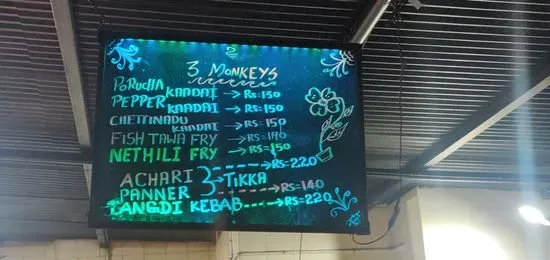 3 MONKEYS
PORUCHA KAADAI → RS:130
PEPPER KAADAI → RS:150
CHETTINADU KAADAI → RS:150
FISH TAWA FRY → RS:190
NETHILI FRY → RS:150
ACHARI → RS:220
3 → TIKKA
PANNER → RS:140
LANGDI KEBAB → RS:220